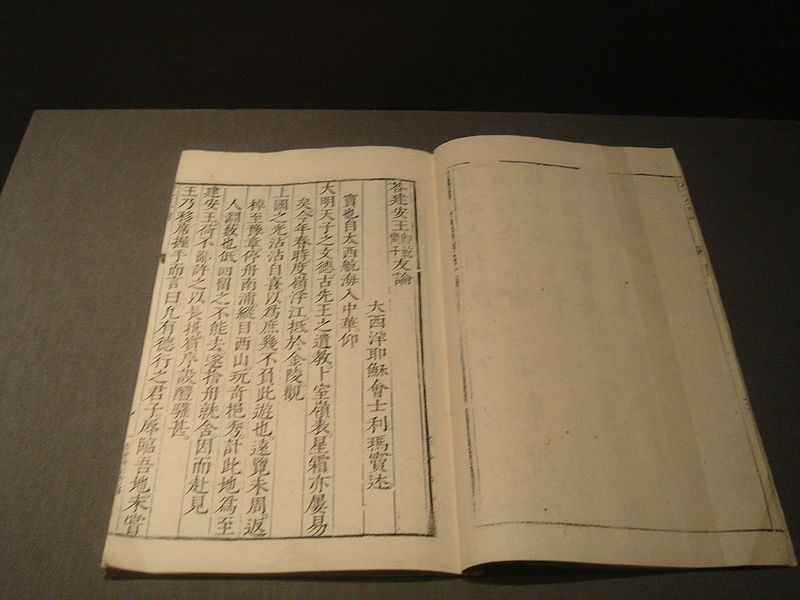 答建安王友論
大西洋耶穌會士利瑪竇述
竇也自大西航海入中華仰
大明天子之文德古先王之遺教卜室嶺表星霜亦屢易
矣今年春時度嶺浮江抵於金陵觀
上國之光沾沾自喜以爲庶幾不負此遊也遠覽未周返
棹至豫章停舟南浦縱目西山玩奇挹秀計此地爲至
人淵藪也低回留之不能去遂捨舟就舍因而赴見
建安王荷不鄙許之以長揖賓序設醴驩甚
王乃移席握手而言曰凡有德行之君子辱臨吾地未嘗